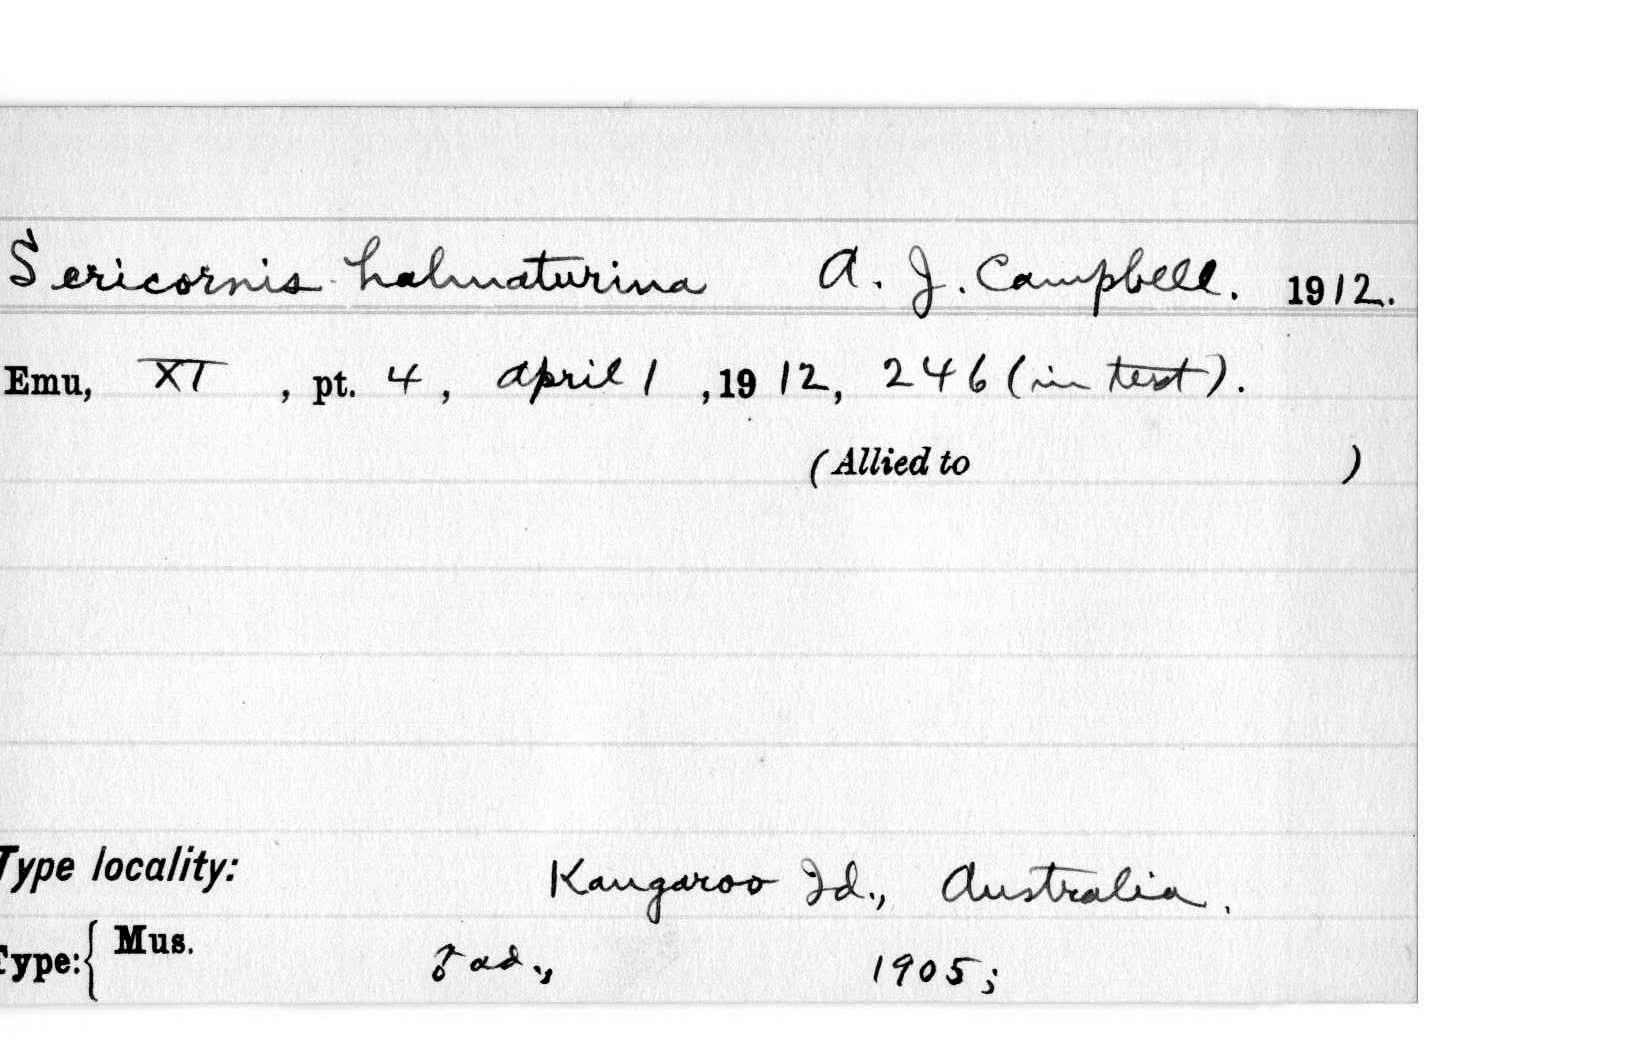 Sericornis halmaturina A. J. Campbell. 1912.
Emu, XI, pt. 4, April 1, 1912, 246 (in text).
(Allied to )
Type locality: Kangaroo Id., Australia.
Type: { Mus. ♂ ad., 1905;